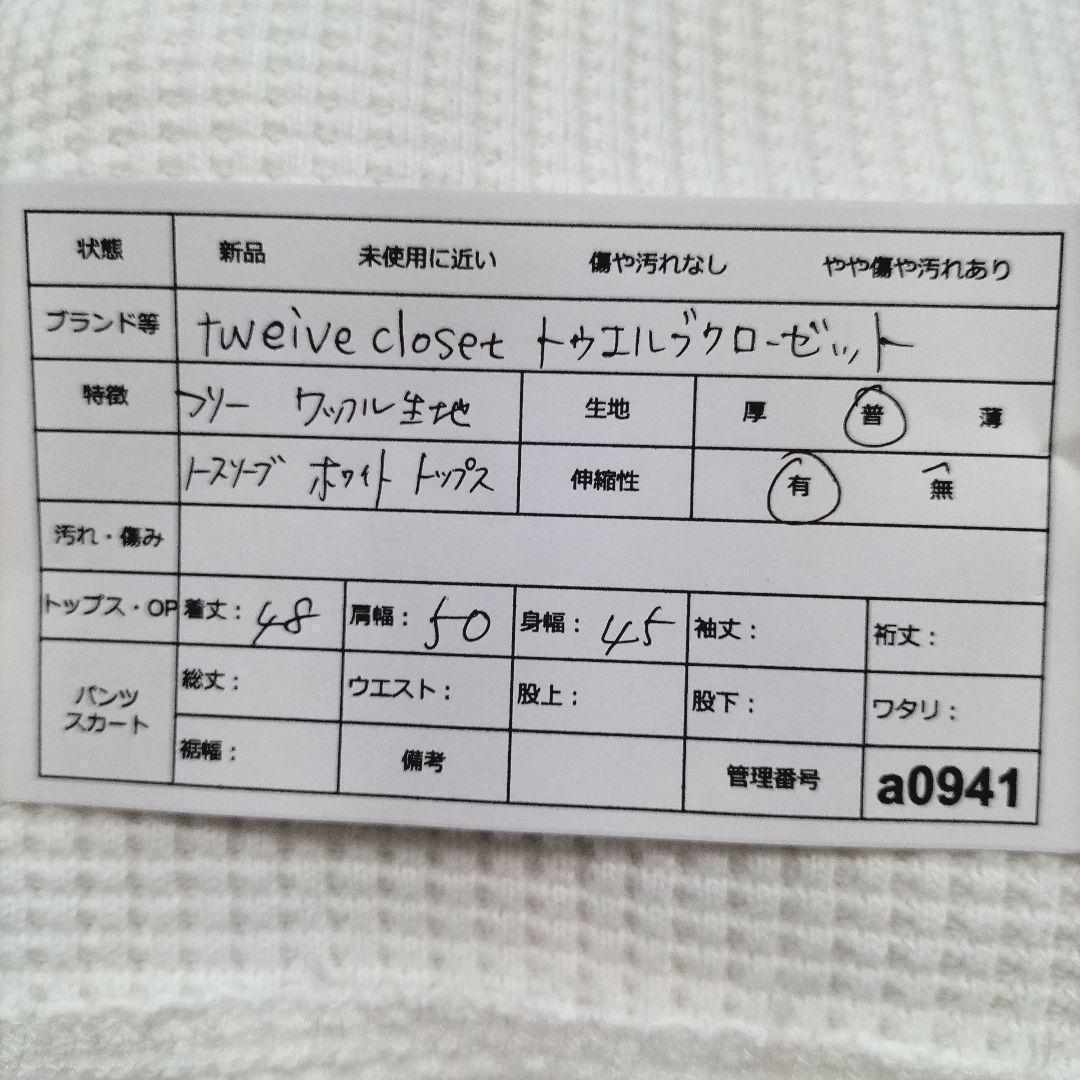 状態 新品 未使用に近い 傷や汚れなし やや傷や汚れあり
ブランド等 tweive closet トゥエルブクローゼット
特徴 フリー ワッフル生地 生地 厚 普 薄
ノースリーブ ホワイト トップス 伸縮性 有 無
汚れ・傷み
トップス・OP 着丈：48 肩幅：50 身幅：45 袖丈： 裄丈：
パンツ スカート 総丈： ウエスト： 股上： 股下： ワタリ：
裾幅： 備考 管理番号 a0941